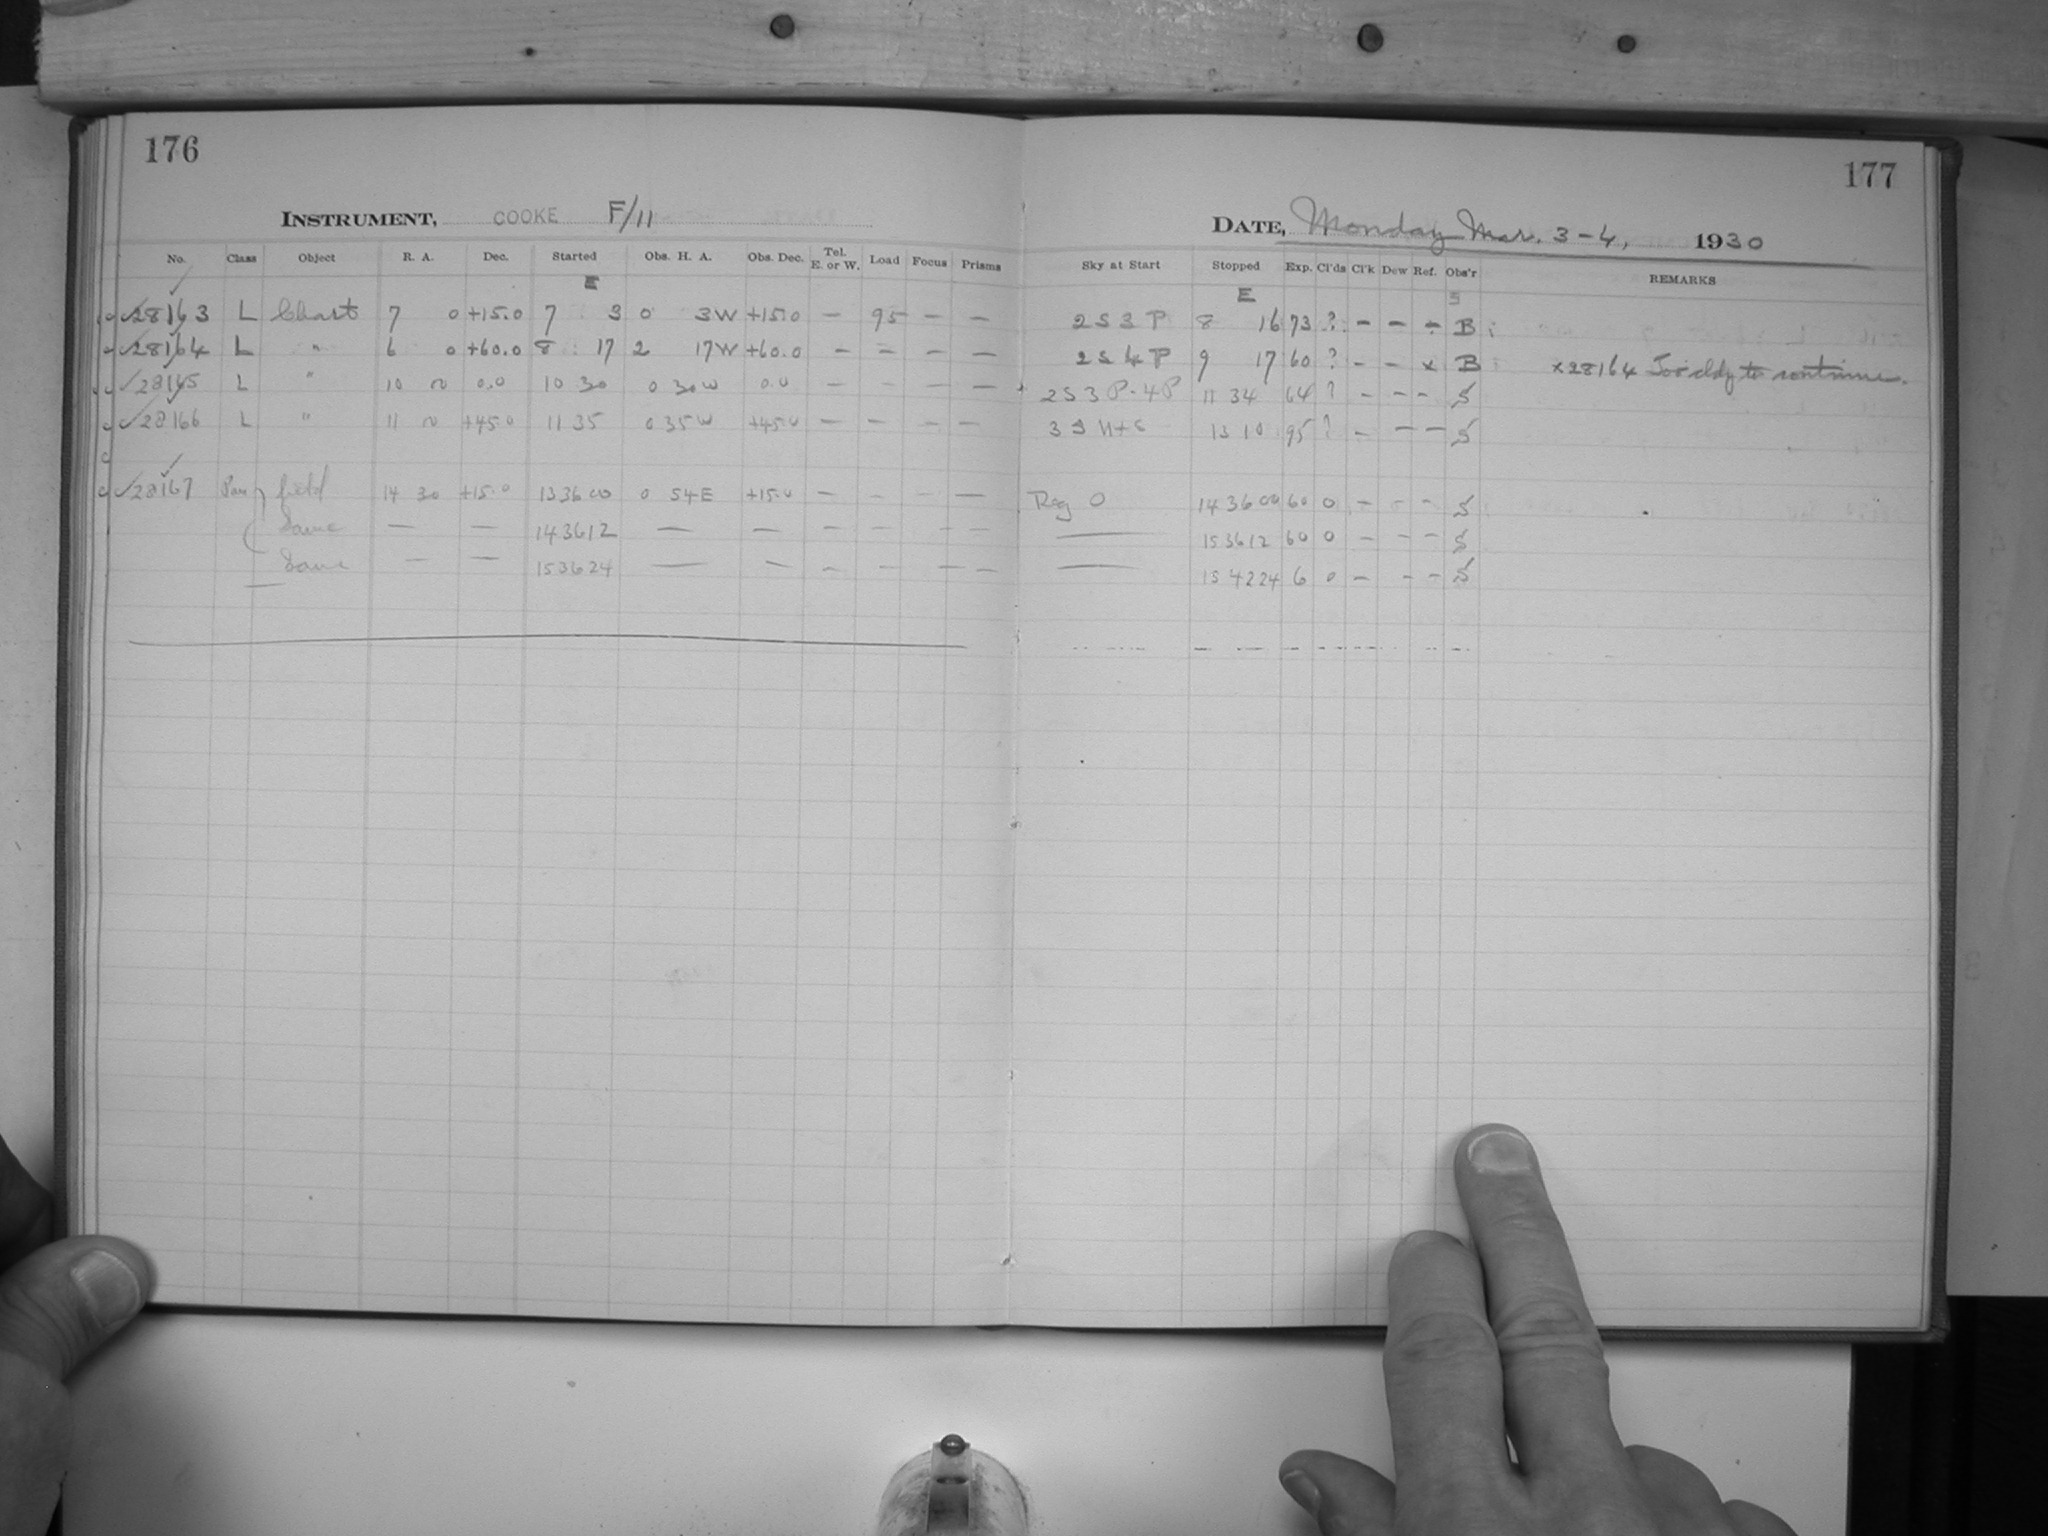 176
177
INSTRUMENT, COOKE F/11
DATE, Monday Mar. 3-4, 1930
No. Class Object R. A. Dec. Started Obs. H. A. Obs. Dec. Tel. E. or W. Load Focus Prisms Sky at Start Stopped Exp. Cl'ds Cl'k Dew Ref. Obs'r REMARKS
E E S
28163 L Chart 7 0 +15.0 7 3 0 3W +15.0 — 95 — — 2S3P 8 16 73 ? — — — B
28164 L " 6 0 +60.0 8 17 2 17W +60.0 — — — — 2S4P 9 17 60 ? — — x B x28164 Too cldy to continue.
28165 L " 10 0.0 10 30 0 30W 0.0 — — — — 2S3P-4P 11 34 64 ? — — — S
28166 L " 11 +45.0 11 35 0 35W +45.0 — — — — 13 10 95 ? — — — S
28167 field 14 30 +15.0 13 36 00 0 54E +15.0 — — — — Reg 0 14 36 00 60 0 — — — S
Same — — 14 36 12 — — — — — — — 15 36 12 60 0 — — — S
Same — — 15 36 24 — — — — — — — 15 42 24 6 0 — — — S